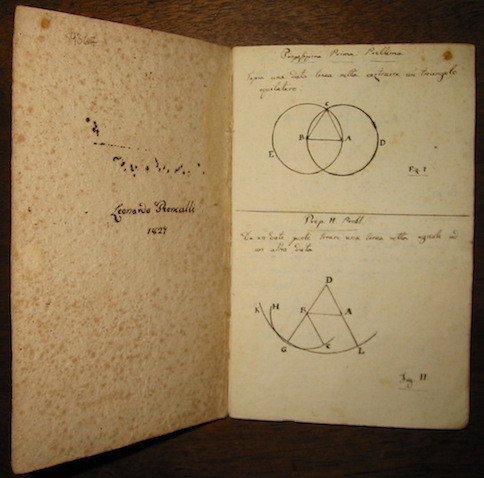 Leonardo Roncalli
1827
Proposizione Prima Problema
sopra una data linea retta costruire un triangolo
equilatero
C
B
A
E
D
Fig. I
Prop. II. Probl.
Da un dato punto tirare una linea retta eguale ad
un altra data
D
K
H
B
A
G
C
L
Fig. II